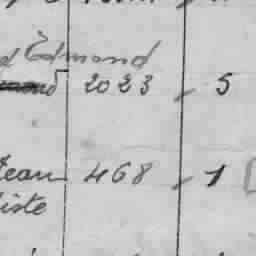 Edmond
2023 5
Jean 468 1
iste